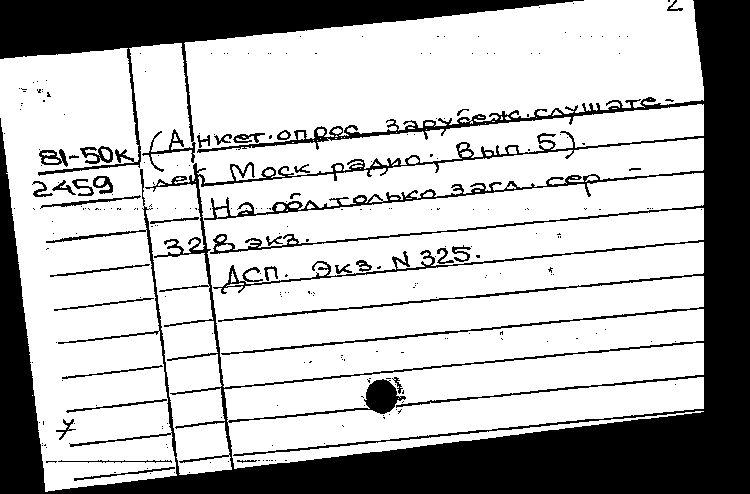 2
(Анкет.опрос зарубеж.слушате-
81-50к
лей Моск.радио; Вып.5).
2459
На обл.только загл. сер. -
328 экз.
ДСП. Экз. N 325.